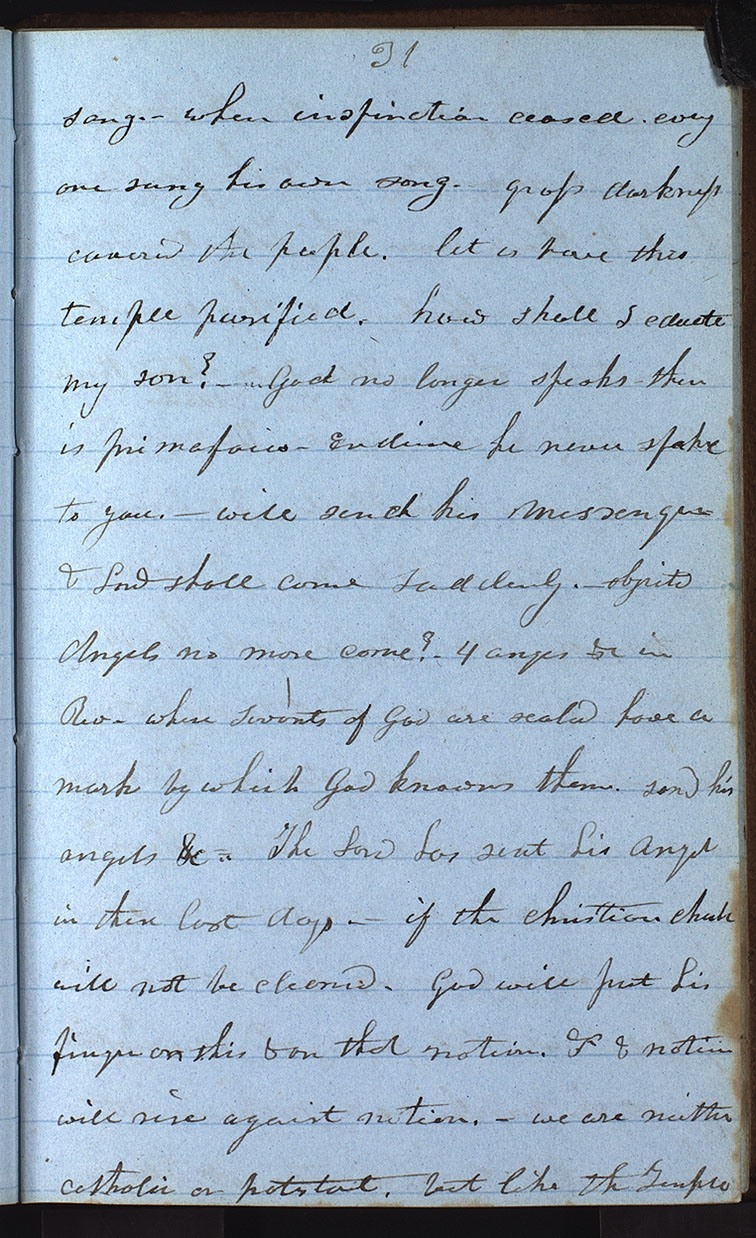 31
song.- when inspiration ceased. evey
one sung his own song- gross darkness
covered the people. let us have this
temple purified. how shall I educate
my son?- - God no longer speaks - then
is prima facie- Evidince he never spake
to you. - will send his Messenger
& Lord shall come suddenly. - object
Angels no more come?- 4 anges &c in
Rev- where Servants of God are seald have a
mark by which God knowns them. send his
angels &c- The Lord has sent his Angel
in these last days - if the christian chuch
will not be cleansd. God will put his
finger on this & on that nation. & nation
will rise against nation. - we are neither
catholic or potstat. but like the Temple